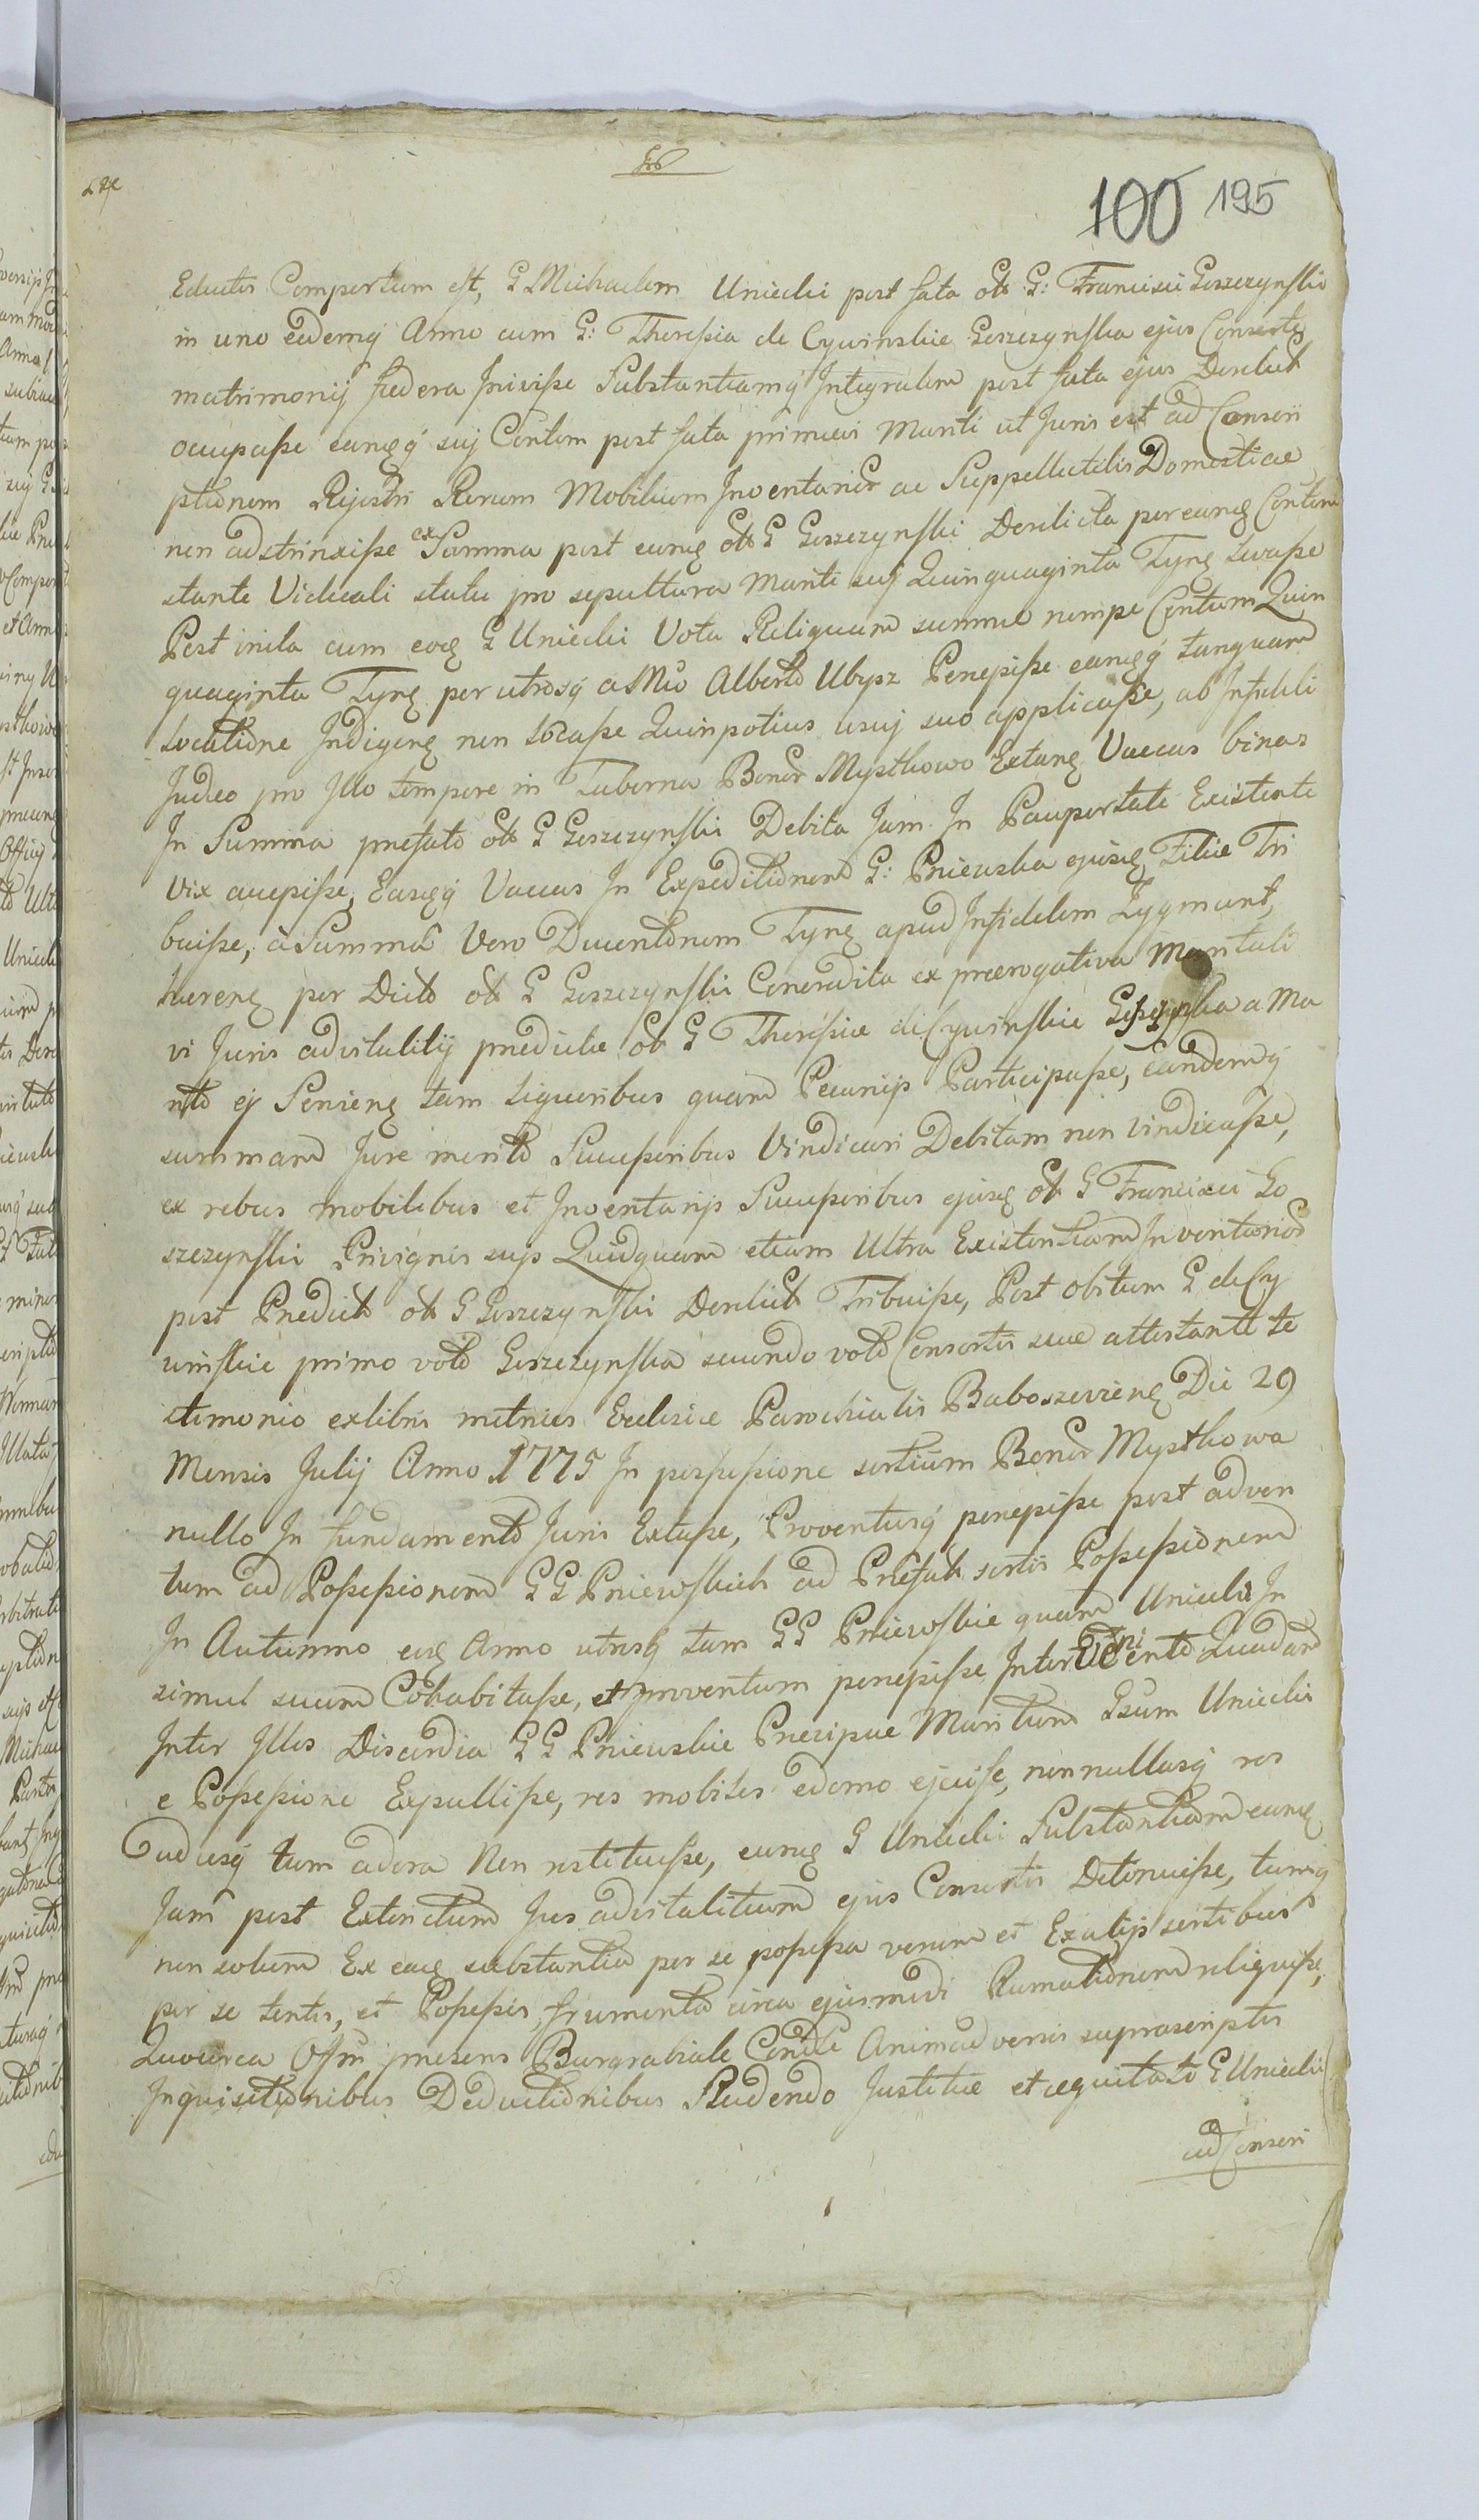 100 195
Eductis Compertum est, G Michaelem Uniecki post fata olr G: Francisci Goszczynski
in uno eodemq Anno cum G: Theresia de Cywinskie Goszczynska ejus Consorte
matrimonij federa Inivisse Substantiamq Integralem post fata ejus Derelict
occupasse eandq suj Contem post fata primevi Mariti ut Juris est ad Conscri
ptionem Rejestri Rerum Mobilium Inventarior ac Suppellectilis Domesticae
non adstrinxisse ex Summa post eund olr G Goszczynski Derelicta per eand Contem
stante Viduali statu pro sepultura Mariti suj Quinquaginta Tynf
Post inita cum eod G Uniecki Vota Reliquam summe nempe Centum Quin
quaginta Tynf per utrosq a Mco Alberto Ubysz Percepisse eandq tanquam
locatione Indigen non locasse Quinpotius usuj suo applicasse, ab Infideli
Judeo pro Illo tempore in Taberna Bonor Mystkowo Extand Vaccas binas
In Summa prefato olr G Goszczynski Debita Jam In Paupertate Existente
vix accepisse, Easdq Vaccas In Expeditionem G: Pniewska ejusd Filiae Tri
buisse, a Summa Vero Ducentorum Tynf apud Infidelem Zygmunt,
per Dicto olr G Goszczynski Concredita ex praerogativa Maritali
vi Juris advitalitij predictae olr G Theresiae de Cywinskie Goszczynska a Ma
rito ej tam liquoribus quam Pecunijs Participasse, eandemq
summam Jure merito Successoribus Vindicari Debitam non vindicasse,
ex rebus mobilibus et Inventarijs Successoribus ejusd olr G Francisci Go
szczynski Privignis sujs Quidquam etiam Ultra Existentiam Inventarior
post Predict olr G Goszczynski Derelict Tribuisse, Post obitum G de Cy
winskie primo voto Goszczynska secundo voto Consortis suae attestante te
stimonio ex libris metrices Ecclesiae Parochialis Baboszeviens Die 29
Mensis Julij Anno 1775 In possessione sortium Bonor Mystkowa
nullo In fundamento Juris Extasse, Proventusq percepisse post adven
tum ad Possessionem GG Pniewskich ad Prefat sortis Possessionem
In Autumno eod Anno utrosq tam GG Pniewskie quam Uniecki In
simul secum Cohabitasse, et proventum percepisse Interveniente Quadam
Inter Illos Discordia GG Pniewskie Precipue Maritum Gsum Uniecki
e Possessione Expulisse, res mobiles e domo ejecisse, nonnullasq res
adusq tum adora Non restituisse, eund G Uniecki Substantiam eand
Jam post Extinctum Jus advitalitium ejus Consortis Detinuisse, tumq
non solum Ex ead substantia per se possessa verum et Ex alijs sortibus
per se tentis, et Possessis, frumenta circa ejusmodi Rumationem reliquisse,
Quocirca Offm presens Burgrabiale Condle Animadversis suprascriptis
Inquisitionibus Deductionibus Studendo Justitiae et aequitati G Uniecki
ad Conscri